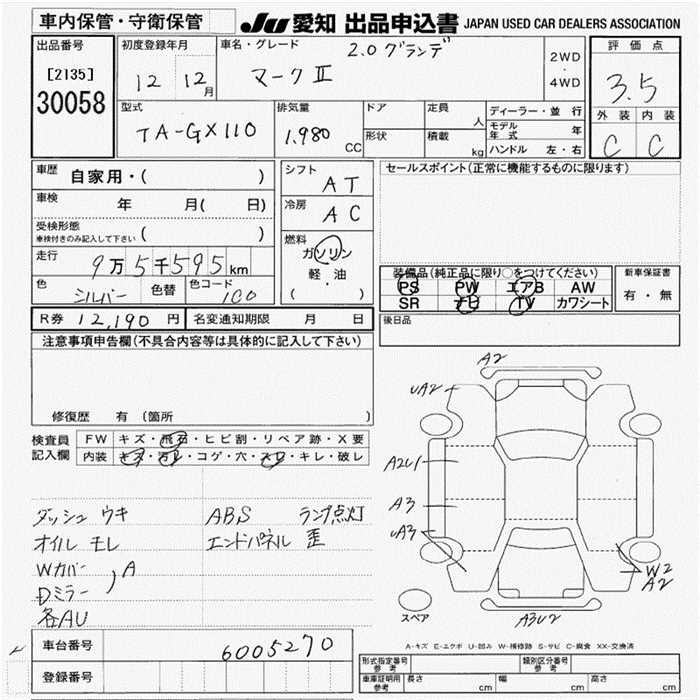 車内保管・守衛保管
JU 愛知 出品申込書 JAPAN USED CAR DEALERS ASSOCIATION
出品番号
[2135]
30058
初度登録年月
12 12月
車名・グレード
2.0グランデ
マークⅡ
2WD
・
4WD
評価点
3.5
外装 内装
C C
型式
TA-GX110
排気量
1,980 CC
ドア
定員 人
形状
積載 kg
ディーラー・並行
モデル年式 年
ハンドル 左・右
車歴
自家用・( )
車検
年 月( 日)
受検形態
車検付きのみ記入して下さい ( )
走行
9万5千595km
色
シルバー 色替
色コード
1C0
シフト
AT
冷房
AC
燃料
ガソリン
軽・油
( )
セールスポイント(正常に機能するものに限ります)
装備品(純正品に限り○をつけてください)
PS PW エアB AW
SR ナビ TV カワシート
新車保証書
有・無
R券 12,190円 名変通知期限 月 日
後日品
注意事項申告欄(不具合内容等は具体的に記入して下さい)
修復歴 有 (箇所 )
検査員
記入欄
FW キズ・飛石・ヒビ割・リペア跡・X要
内装 キズ・汚レ・コゲ・穴・スレ・キレ・破レ
ダッシュ ウキ
ABS ランプ点灯
オイル モレ
エンドパネル 歪
Wカバー
Dミラー
A
各AU
A2
UA2
A2U1
A3
UA3
W2
A2
A3U2
スペア
A-キズ E-エクボ U-凹み W-補修跡 S-サビ C-腐食 XX-交換済
車台番号
6005270
登録番号
型式指定番号
参考
類別区分番号
参考
車庫証明用
参考
長さ cm 幅 cm 高さ cm